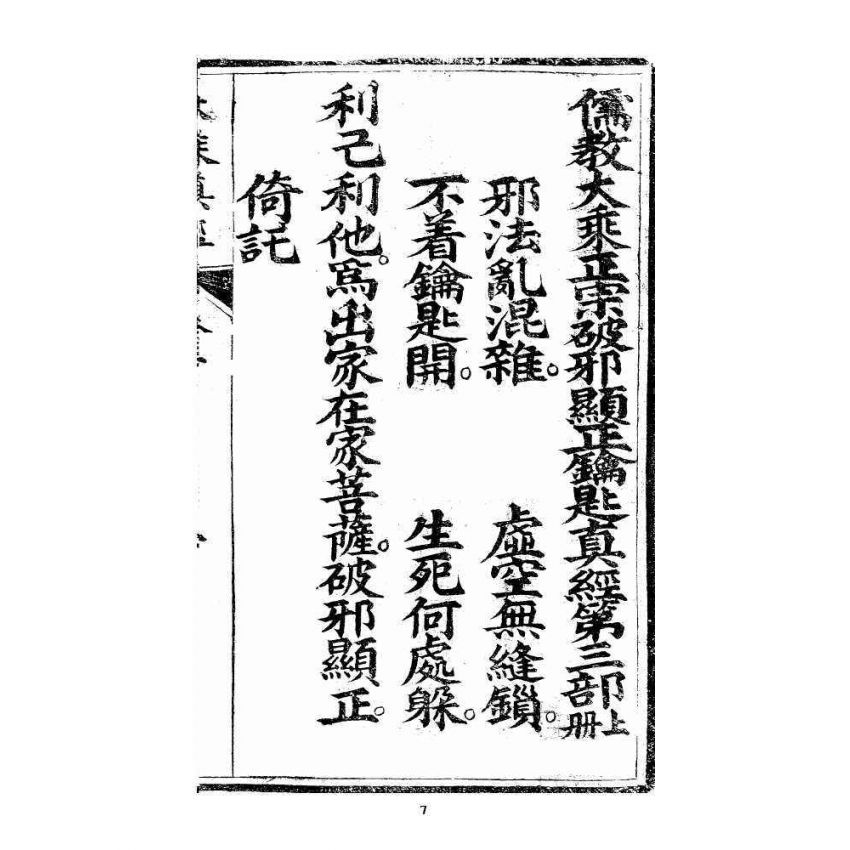 儒教大乘正宗破邪顯正鑰匙真經第三部上册
邪法亂混雜。 虛空無縫鎖。
不着鑰匙開。 生死何處躱。
利己利他。爲出家在家菩薩。破邪顯正。
倚託
7